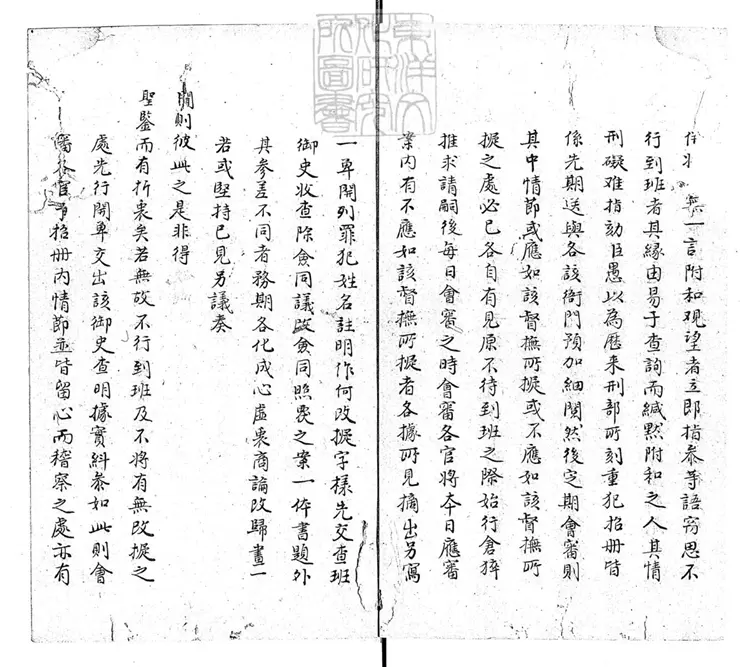 無一言附和观望者立即指叅等語窃思不
行到班者其縁由易于查詢而緘黙附和之人其情
刑礙难指劾臣愚以為歴来刑部所刻重犯招册皆
係先期送與各該衙門預加細閲然後定期會審則
其中情節或應如該督撫所擬或不應如該督撫所
擬之處必已各自有見原不待到班之際始行倉猝
推求請嗣後每日會審之時會審各官將本日應審
案内有不應如該督撫所擬者各據所見摘出另寫
一单開列罪犯姓名註明作何改擬字樣先交查班
御史收查除僉同議改僉同照之案一併書題外
其参差不同者務期各化成心虚衷商論改歸畫一
若或堅持已見另議奏
聞則彼此之是非得
聖鑒而有折衷矣若無故不行到班及不將有無改擬之
處先行開单交出該御史查明據實糾叅如此則會
審各官于招册内情節並皆留心而稽察之處亦有
東洋文化研究所圖書